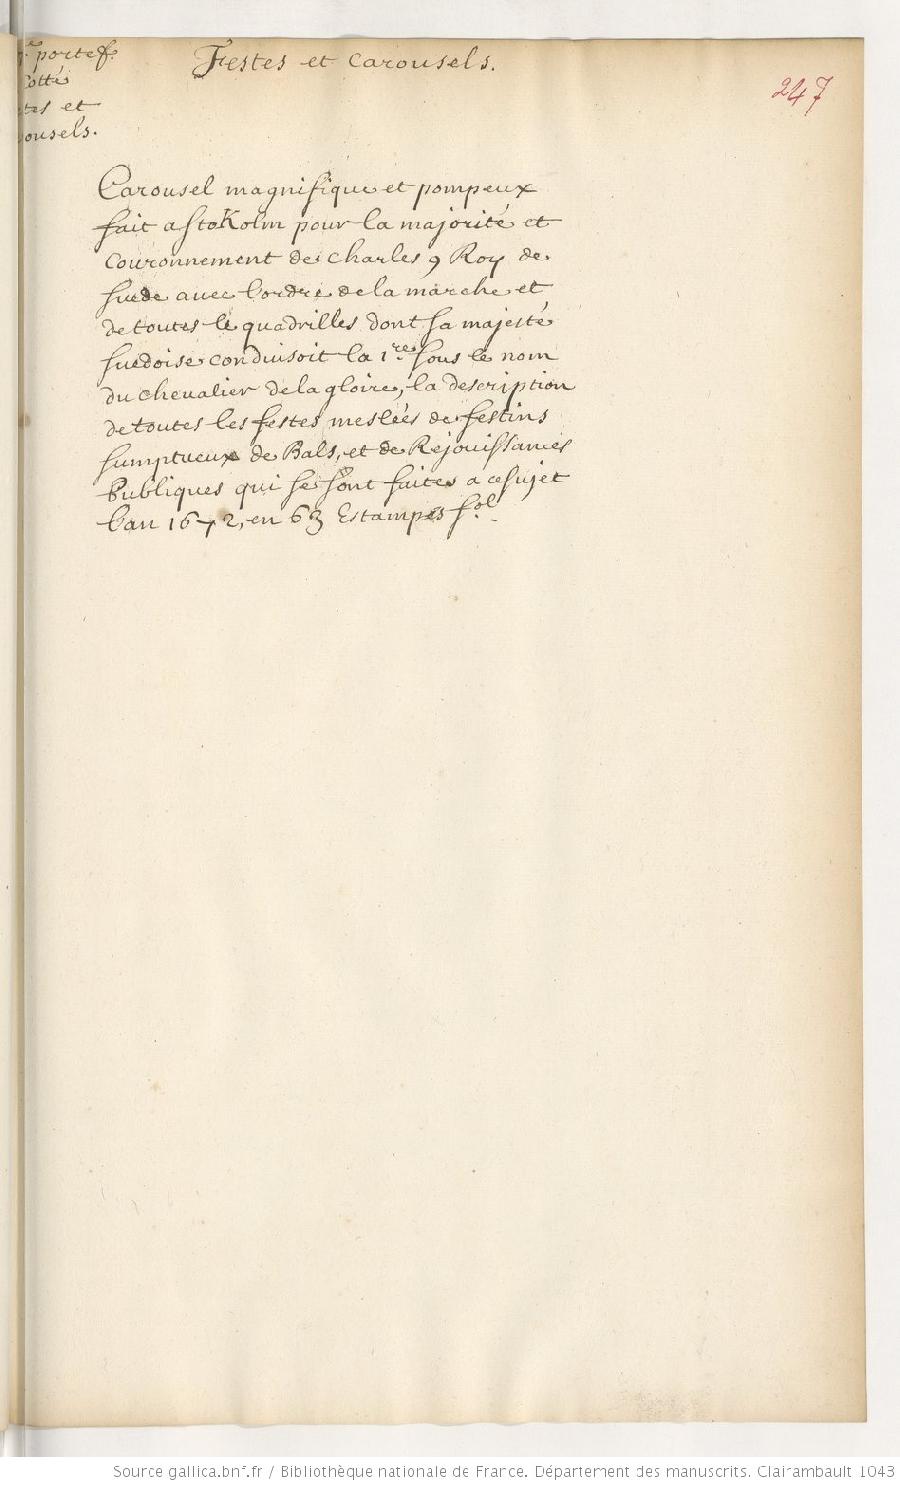 portef.
Cotté
tes et
ousels.
Festes et Carousels.
247
Carousel magnifique et pompeux
fait a stoKolm pour la majorité et
couronnement de charles 9 Roy de
suede avec l'ordre de la marche et
de toutes le quadrilles dont sa majesté
suedoise conduisoit la 1.re sous le nom
du chevalier de la gloire, la description
de toutes les festes meslées de festins
sumptueux de Bals, et de Rejouissances
Publiques qui se sont faites a ce sujet
l'an 1672, en 63 Estampes fol.
Source gallica.bnf.fr / Bibliothèque nationale de France. Département des manuscrits. Clairambault 1043